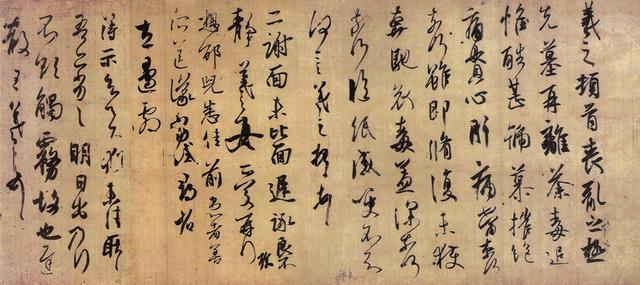 羲之頓首喪亂之極
先墓再離荼毒追
惟酷甚號慕摧絕
痛貫心肝痛當奈何
奈何雖即脩復未獲
奔馳哀毒益深奈何
奈何臨紙感哽不知
何言羲之頓首頓首
二謝面未比面遲詠良不
靜羲之女愛再拜
想邵兒悉佳前患者善
所送議當
左邊劇
得示知足下猶未佳耿耿
吾亦劣劣明日出乃行
不欲觸霧故也遲
散王羲之頓首